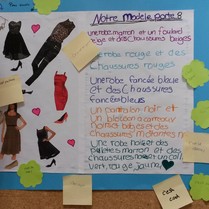 Notre Modèle porte 8
une robe marron et un foulard
rouge et des Chaussures beiges
une robe rouge et des
Chaussures rouges
une robe foncée bleue
et des Chaussures
foncée bleues
un pantalon noir et
un blouson a carreaux
marron et des
une robe noire et des
paillettes marron et des
chaussures noires et un coll
vert, rouge, jaune,
c'est
cool